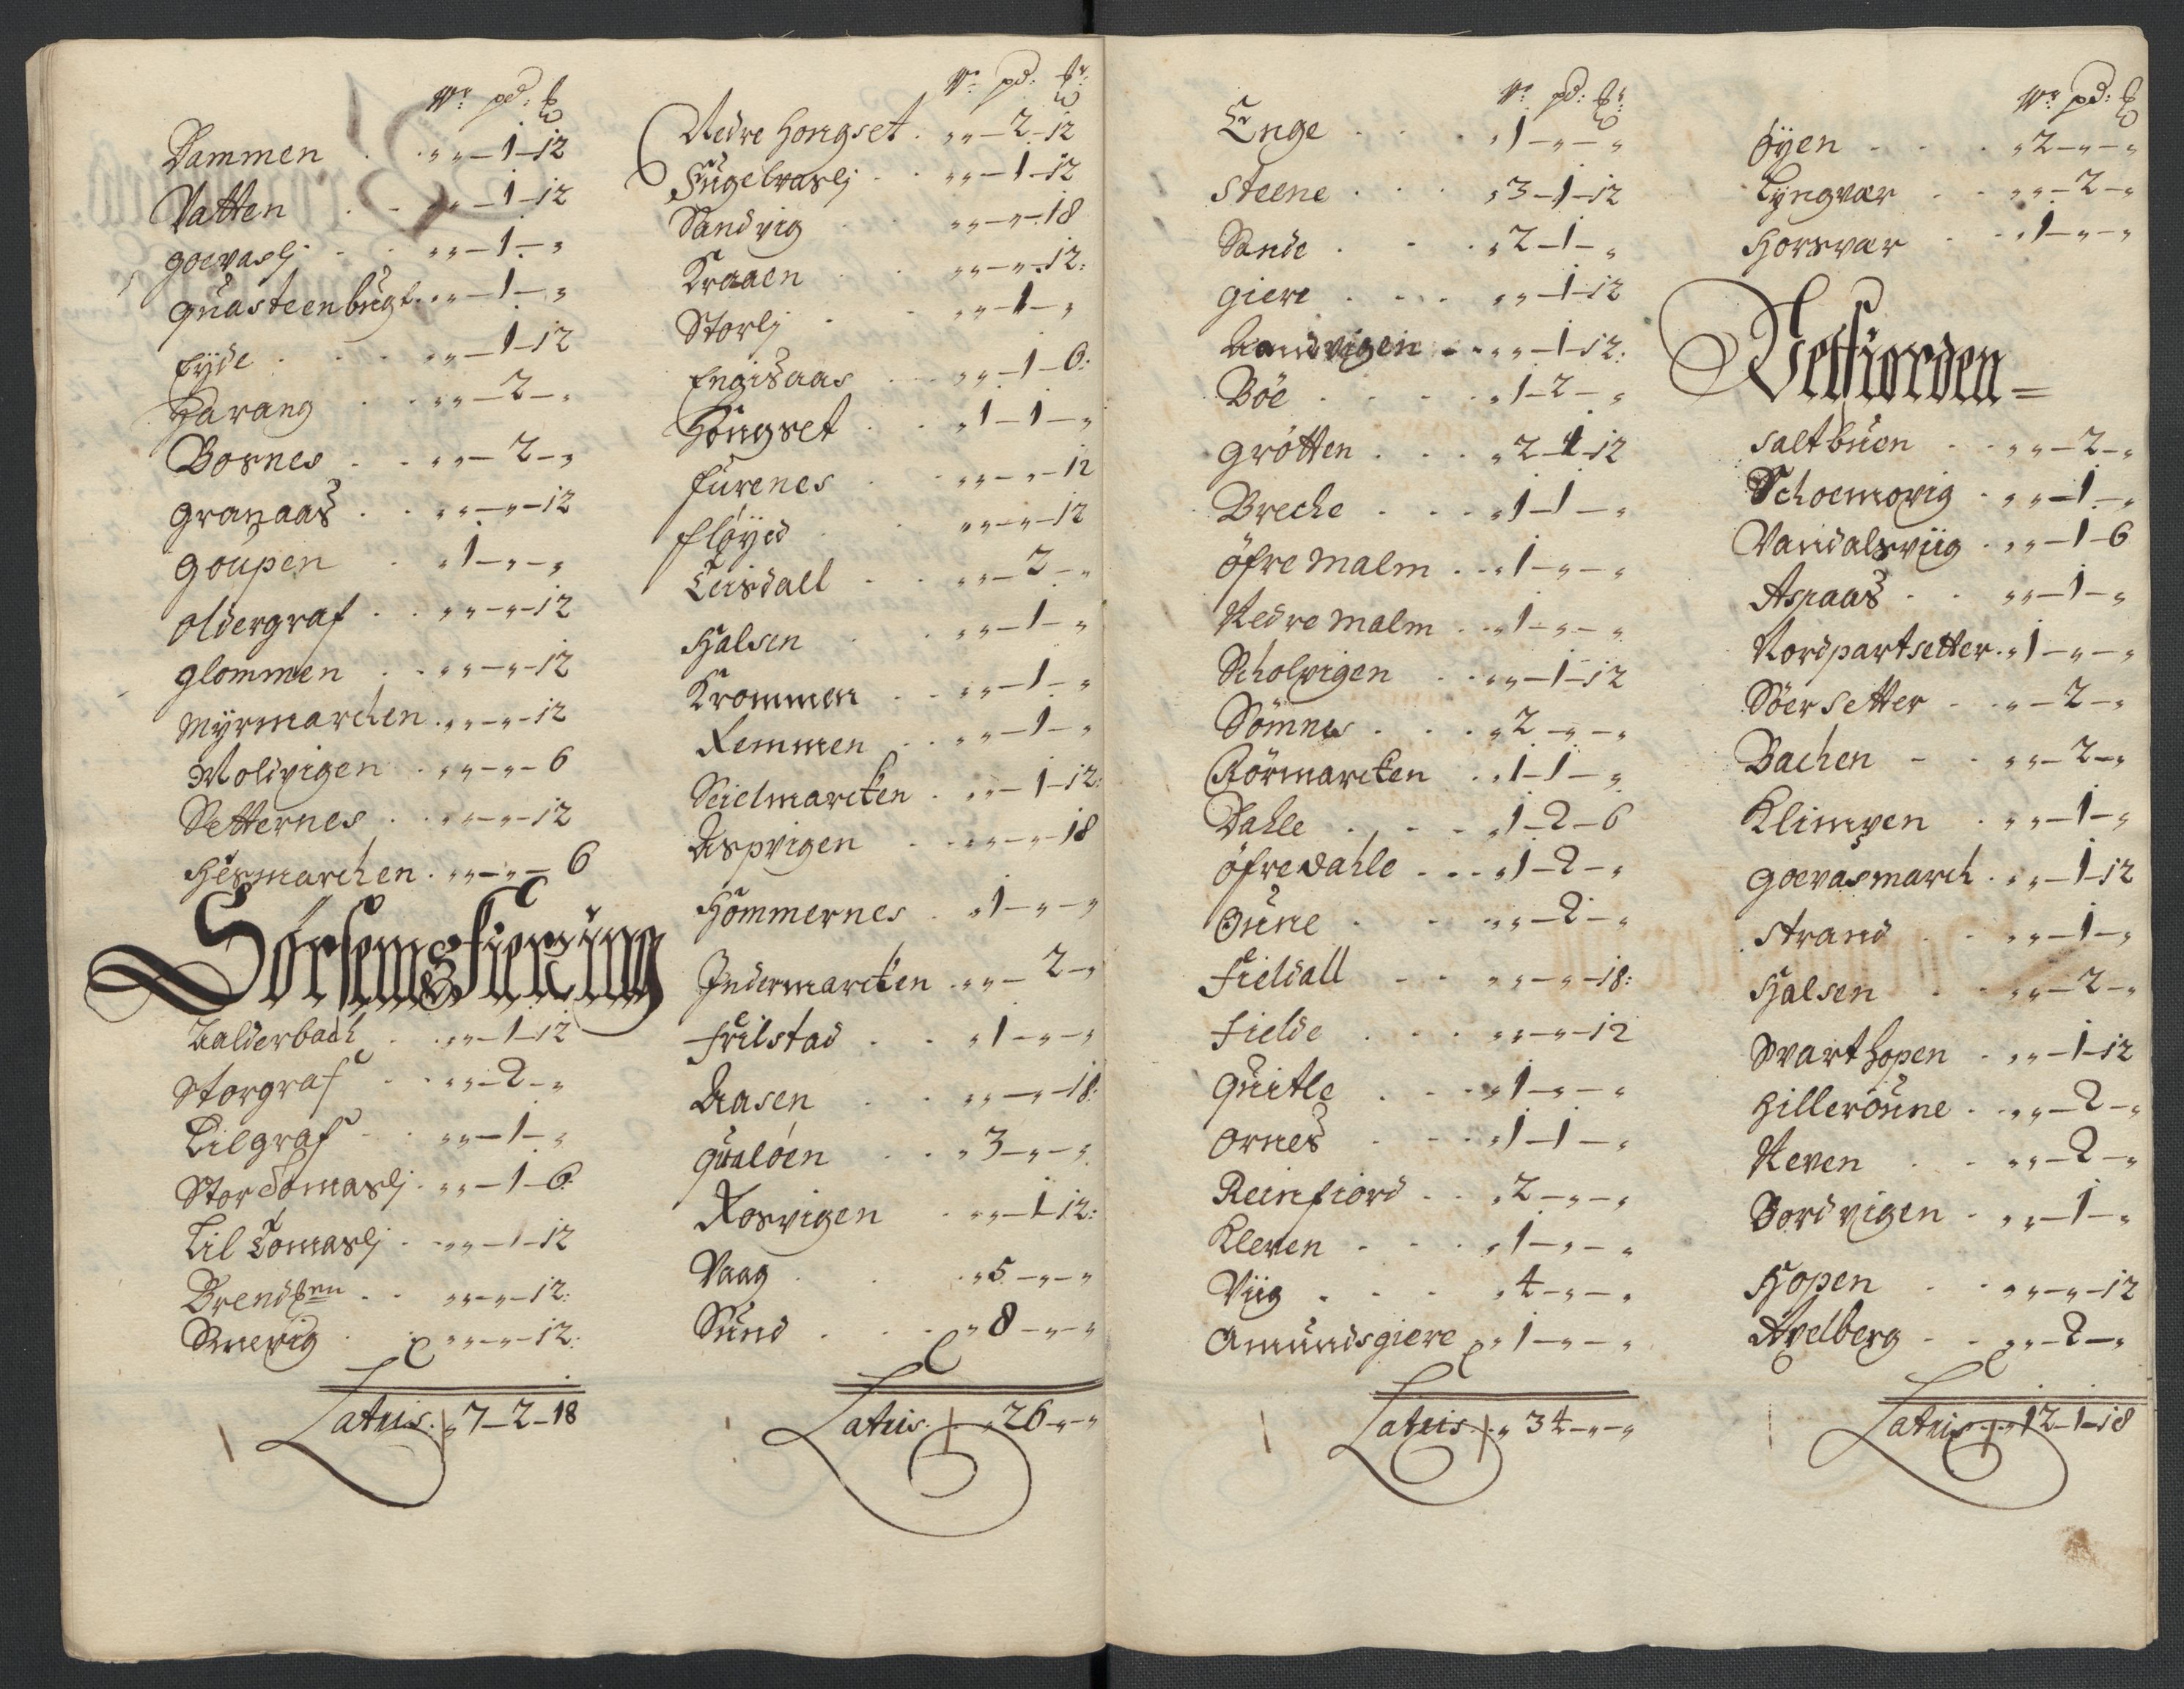 Wr: pd: ℔
Dammen . . „ „ – 1 – 12
Vatten . . „ „ – 1 – 12
Goevaslj . . „ „ – 1 – „
Quasteenbugt . „ „ – 1 – „
Eyde . . . „ „ – 1 – 12
Harang . . „ „ – 2 – „
Bosnes . . „ „ – 2 – „
Granaas . . „ „ – „ – 12
Goupen . „ 1 – „ – „
Oldergraf . . „ „ – „ – 12
Glommen . . „ „ – „ – 12
Myrmarchen . „ „ – „ – 12
Moldvigen . „ „ – „ – 6
Setternes . . „ „ – „ – 12
Hesmarchen . „ „ – „ – 6
Sörsemsfierüng
Aalderbach . . „ „ – 1 – 12
Storgraf . . „ „ – 2 – „
Lilgraf . . „ „ – 1 – „
Stor Tomaslj . „ „ – 1 – 6:
Lil Tomaslj . . „ „ – 1 – 12
Brend . . „ „ – „ – 12:
Smevig . . „ „ – „ – 12:
Latus . „ 7 – 2 – 18
Wr: pd: ℔r:
Nedre Hongset . „ „ – 2 – 12
Fugelvaslj . . „ „ – 1 – 12
Sandvig . „ „ – „ – 18
Kraaen . . „ „ – „ – 12:
Storlj . . „ „ – 1 – „
Engisaas . . „ „ – 1 – 6:
Hongset . . „ 1 – 1 – „
Furenes . . „ „ – „ – 12
Fløyed . . „ „ – „ – 12
Leisdall . . „ „ – 2 – „
Halsen . . „ „ – 1 – „
Krommen . . „ „ – 1 – „
Remmen . . „ „ – 1 – „
Seielmarcken . „ „ – 1 – 12:
Aspvigen . . „ „ – „ – 18
Hommernes . „ 1 – „ – „
Indermarcken . „ „ – 2 – „
Frilstad . . „ 1 – „ – „
Aasen . . „ „ – „ – 18:
Qualöen . . „ 3 – „ – „
Rosvigen . „ „ – 1 – 12:
Vaag . . . „ 5 – „ – „
Sund . . . „ 8 – „ – „
Latus . „ 26 – „ – „
Wr: pd: ℔r:
Enge . . . „ 1 – „ – „
Steene . . . „ 3 – 1 – 12
Sande . . . „ 2 – 1 – „
Giere . . . „ „ – 1 – 12
Aandvigen . . „ „ – 1 – 12:
Böe . . . . „ 1 – 2 – „
Grötten . . . „ 2 – 1 – 12
Breche . . . „ 1 – 1 – „
Öfre Malm . . „ 1 – „ – „
Nedre Malm . . „ 1 – „ – „
Scholvigen . . „ „ – 1 – 12
Sömnes . . . „ 2 – „ – „
Rörmarcken . . „ 1 – 1 – „
Dahle . . . „ 1 – 2 – 6
Öfre Dahle . . . „ 1 – 2 – „
Oune . . . „ „ – 2 – „
Fieldall . . „ „ – „ – 18:
Fielde . . . „ „ – „ – 12
Quitle . . . „ 1 – „ – „
Ornes . . . „ 1 – 1 – „
Reinfiord . . „ 2 – „ – „
Kleven . . . „ 1 – „ – „
Viig . . . „ 4 – „ – „
Amundsgiere . „ 1 – „ – „
Latus . . „ 34 – „ – „
Wr: pd: ℔
Öyen . . . „ 2 – „ – „
Lyngvær . . „ „ – 2 – „
Horsvær . . „ 1 – „ – „
Vetfiorden =
Saltbuen . . „ „ – 2 – „
Schoemovig . „ „ – 1 – „
Vandalsviig . „ „ – 1 – 6
Aspaas . . „ „ – 1 – „
Nordpartsetter . „ 1 – „ – „
Söer Setter . . „ – 2 – „
Bachen . . „ „ – 2 – „
Klimpen . „ „ – 1 – „
Goevasmarch . „ „ – 1 – 12
Strand . . „ „ – 1 – „
Halsen . . „ „ – 2 – „
Svarthopen . „ „ – 1 – 12
Hilleroune . „ „ – 2 – „
Neven . . „ „ – 2 – „
Bordvigen . „ „ – 1 – „
Hopen . . „ „ – „ – 12
Avelberg . . „ „ – 2 – „
Latus . . „ 12 – 1 – 18